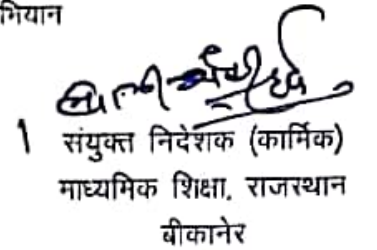 भियान
संयुक्त निदेशक (कार्मिक)
माध्यमिक शिक्षा, राजस्थान
बीकानेर